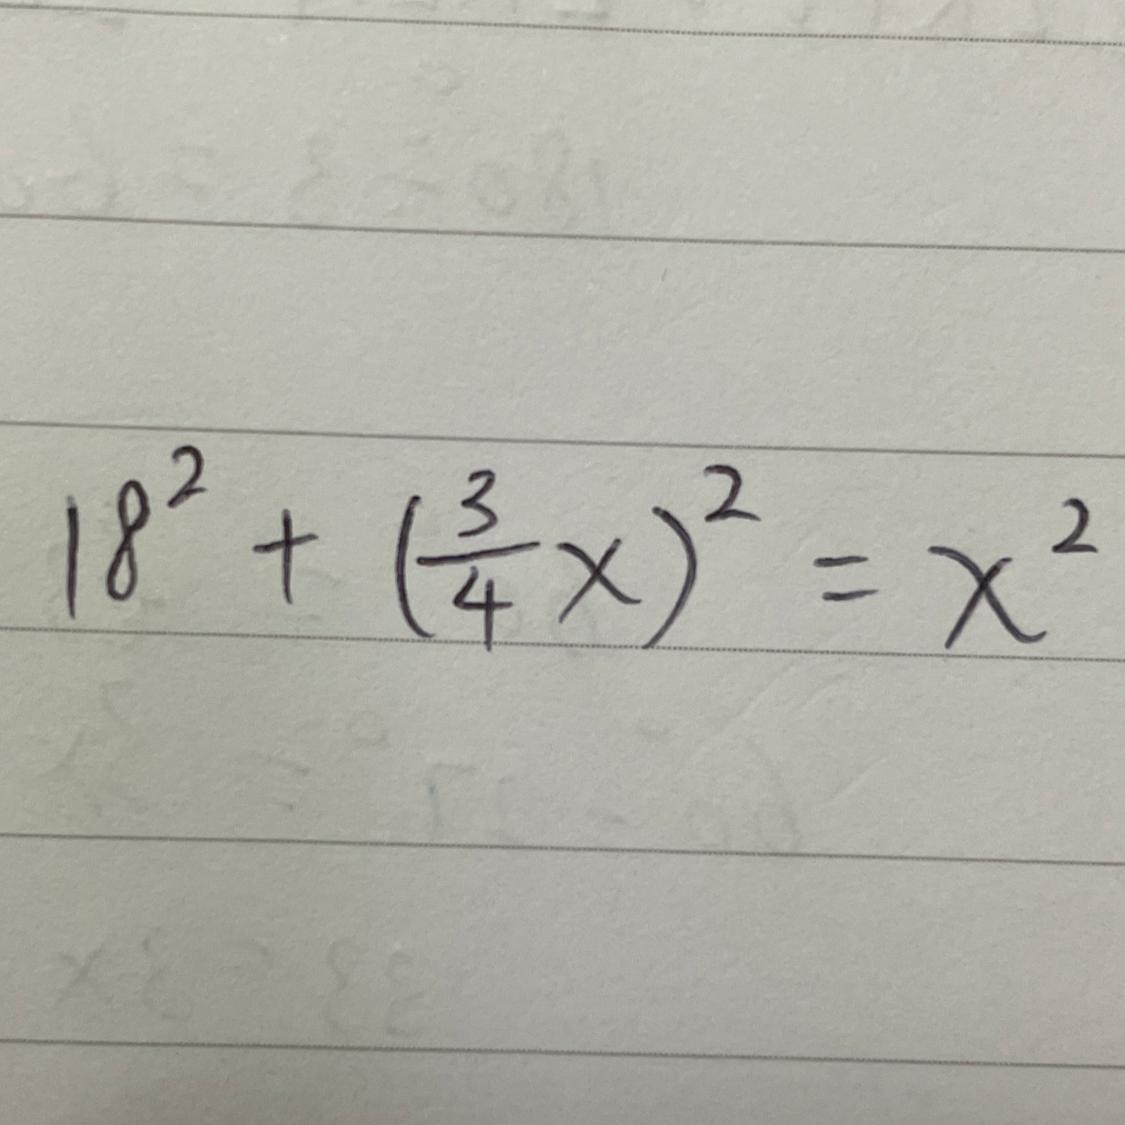 18² + (3/4 x)² = x²